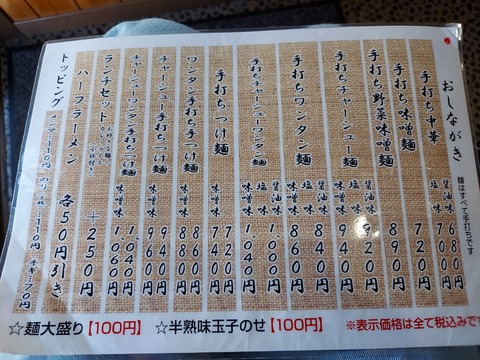 おしながき
麺はすべて手打ちです
手打ち中華 醤油味 680円
塩味 700円
手打ち味噌麺 720円
手打ち野菜味噌麺 890円
手打ちチャーシュー麺 醤油味 920円
塩味 味噌味 940円
手打ちワンタン麺 醤油味 840円
塩味 味噌味 860円
手打ちチャーシューワンタン麺 醤油味 1,000円
塩味 味噌味 1,040円
手打ちつけ麺 720円
味噌味 740円
ワンタン手打ちつけ麺 860円
味噌味 880円
チャーシュー手打ちつけ麺 940円
味噌味 960円
チャーシューワンタン手打ちつけ麺 1,040円
味噌味 1,060円
ランチセット +250円
ハーフラーメン 各50円引き
トッピング メンマ…110円 のり…110円 ネギ…70円
☆麺大盛り【100円】 ☆半熟味玉子のせ【100円】 ※表示価格は全て税込みです